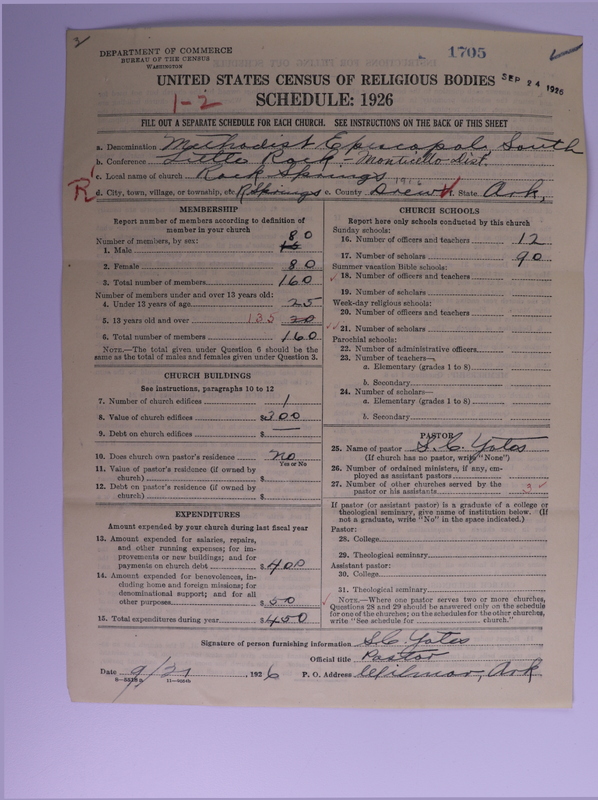 DEPARTMENT OF COMMERCE
BUREAU OF THE CENSUS
WASHINGTON
1705
UNITED STATES CENSUS OF RELIGIOUS BODIES
SEP 24 1926
1-2
SCHEDULE: 1926
FILL OUT A SEPARATE SCHEDULE FOR EACH CHURCH. SEE INSTRUCTIONS ON THE BACK OF THIS SHEET
a. Denomination Methodist Episcopal, South
b. Conference Little Rock - Monticello Dist.
c. Local name of church Rock Springs
R
d. City, town, village, or township, etc. R. Springs e. County Drew f. State Ark.
MEMBERSHIP
Report number of members according to definition of
member in your church
Number of members, by sex:
1. Male 80
2. Female 80
3. Total number of members 160
Number of members under and over 13 years old:
4. Under 13 years of age 25
5. 13 years old and over 135
6. Total number of members 160
NOTE.—The total given under Question 6 should be the
same as the total of males and females given under Question 3.
CHURCH BUILDINGS
See instructions, paragraphs 10 to 12
7. Number of church edifices 1
8. Value of church edifices $300
9. Debt on church edifices $ —
10. Does church own pastor's residence No
Yes or No
11. Value of pastor's residence (if owned by
church) $
12. Debt on pastor's residence (if owned by
church) $
EXPENDITURES
Amount expended by your church during last fiscal year
13. Amount expended for salaries, repairs,
and other running expenses; for im-
provements or new buildings; and for
payments on church debt $400
14. Amount expended for benevolences, in-
cluding home and foreign missions; for
denominational support; and for all
other purposes $50
15. Total expenditures during year $450
CHURCH SCHOOLS
Report here only schools conducted by this church
Sunday schools:
16. Number of officers and teachers 12
17. Number of scholars 90
Summer vacation Bible schools:
18. Number of officers and teachers
19. Number of scholars
Week-day religious schools:
20. Number of officers and teachers
21. Number of scholars
Parochial schools:
22. Number of administrative officers
23. Number of teachers—
a. Elementary (grades 1 to 8)
b. Secondary
24. Number of scholars—
a. Elementary (grades 1 to 8)
b. Secondary
PASTOR
25. Name of pastor S. C. Yates
(If church has no pastor, write "None")
26. Number of ordained ministers, if any, em-
ployed as assistant pastors
27. Number of other churches served by the
pastor or his assistants 3
If pastor (or assistant pastor) is a graduate of a college or
theological seminary, give name of institution below. (If
not a graduate, write "No" in the space indicated.)
Pastor:
28. College
29. Theological seminary
Assistant pastor:
30. College
31. Theological seminary
NOTE.—Where one pastor serves two or more churches,
Questions 28 and 29 should be answered only on the schedule
for one of the churches; on the schedules for the other churches,
write "See schedule for church."
Signature of person furnishing information S. C. Yates
Official title Pastor
Date 9/21, 1926 P. O. Address Wilmar, Ark